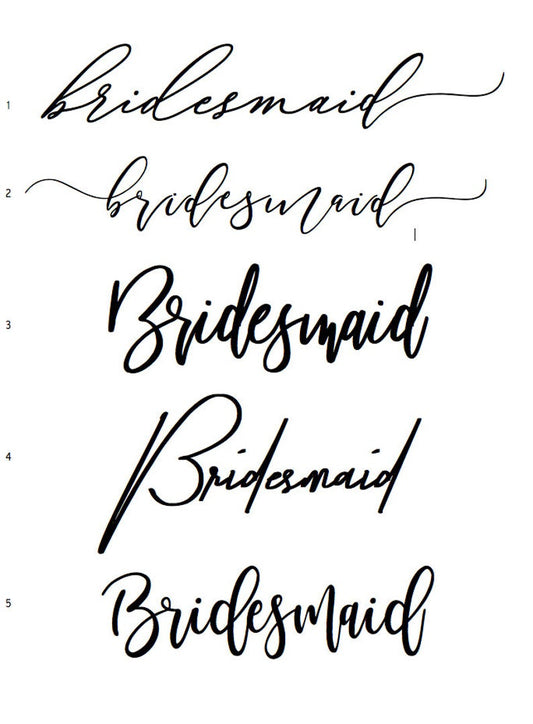 1 bridesmaid
2 bridesmaid
3 Bridesmaid
4 Bridesmaid
5 Bridesmaid